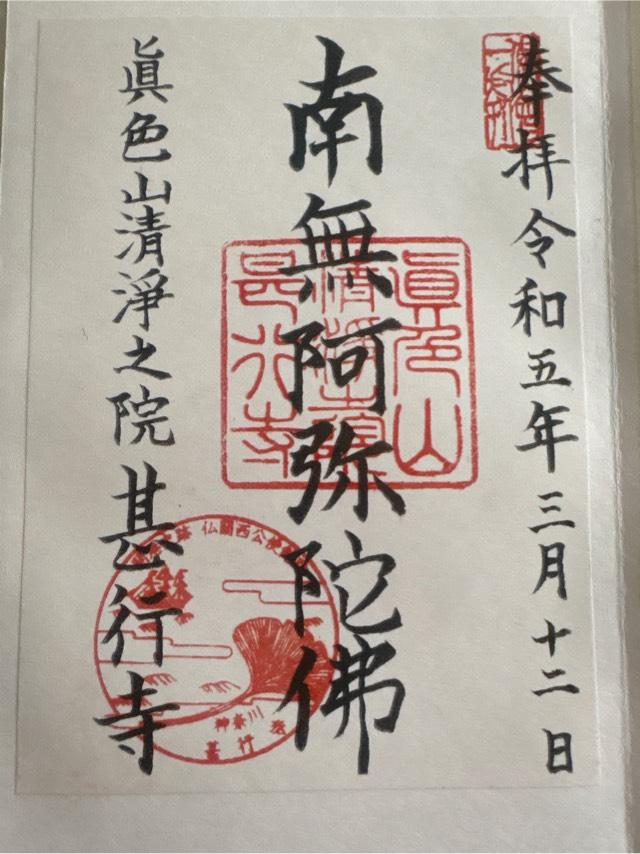 奉拝 令和五年三月十二日
南無阿弥陀佛
眞色山清淨之院 甚行寺
眞色山
清淨之院
甚行寺
仏蘭西公使
神奈川
甚行寺